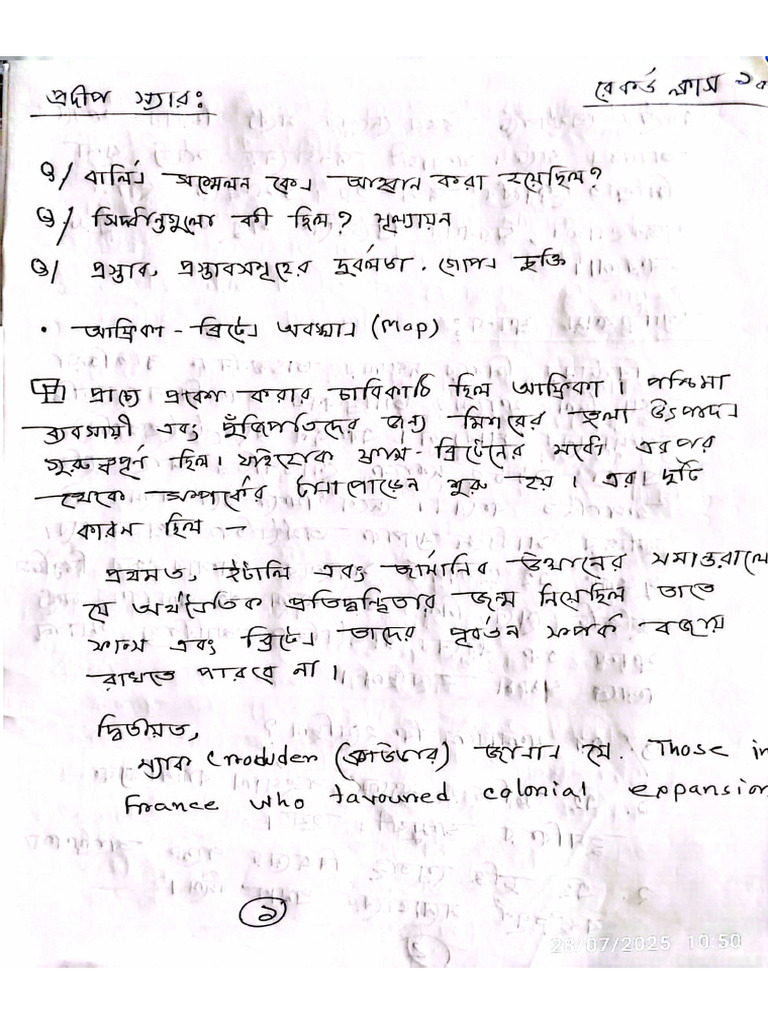 প্রদীপ স্যার:
রেকর্ড ক্লাস ১০
Q/ বার্লিন সম্মেলন কেন আহ্বান করা হয়েছিল?
Q/ সিদ্ধান্তগুলো কী ছিল? মূল্যায়ন
Q/ প্রস্তাব, প্রস্তাবসমূহের দুর্বলতা. গোপন চুক্তি
• আফ্রিকা - ব্রিটেন অবস্থান (Map)
প্রাচ্যে প্রবেশ করার চাবিকাঠি ছিল আফ্রিকা। পশ্চিমা
ব্যবসায়ী এবং পুঁজিপতিদের জন্য মিশরের তুলা উৎপাদন
গুরুত্বপূর্ণ ছিল। যাইহোক ফ্রান্স - ব্রিটেনের মধ্যে এরপর
থেকে সম্পর্কের টানাপোড়েন শুরু হয়। এর দুটি
কারন ছিল -
প্রথমত, ইটালি এবং জার্মানির উত্থানের সমান্তরালে
যে অর্থনৈতিক প্রতিদ্বন্দ্বিতার জন্ম নিয়েছিল তাতে
ফ্রান্স এবং ব্রিটেন তাদের পূর্বতন সম্পর্ক বজায়
রাখতে পারবে না।
দ্বিতীয়ত,
ম্যাক জানান যে. Those in
France who favoured colonial expansion
১
28/07/2025 10:50